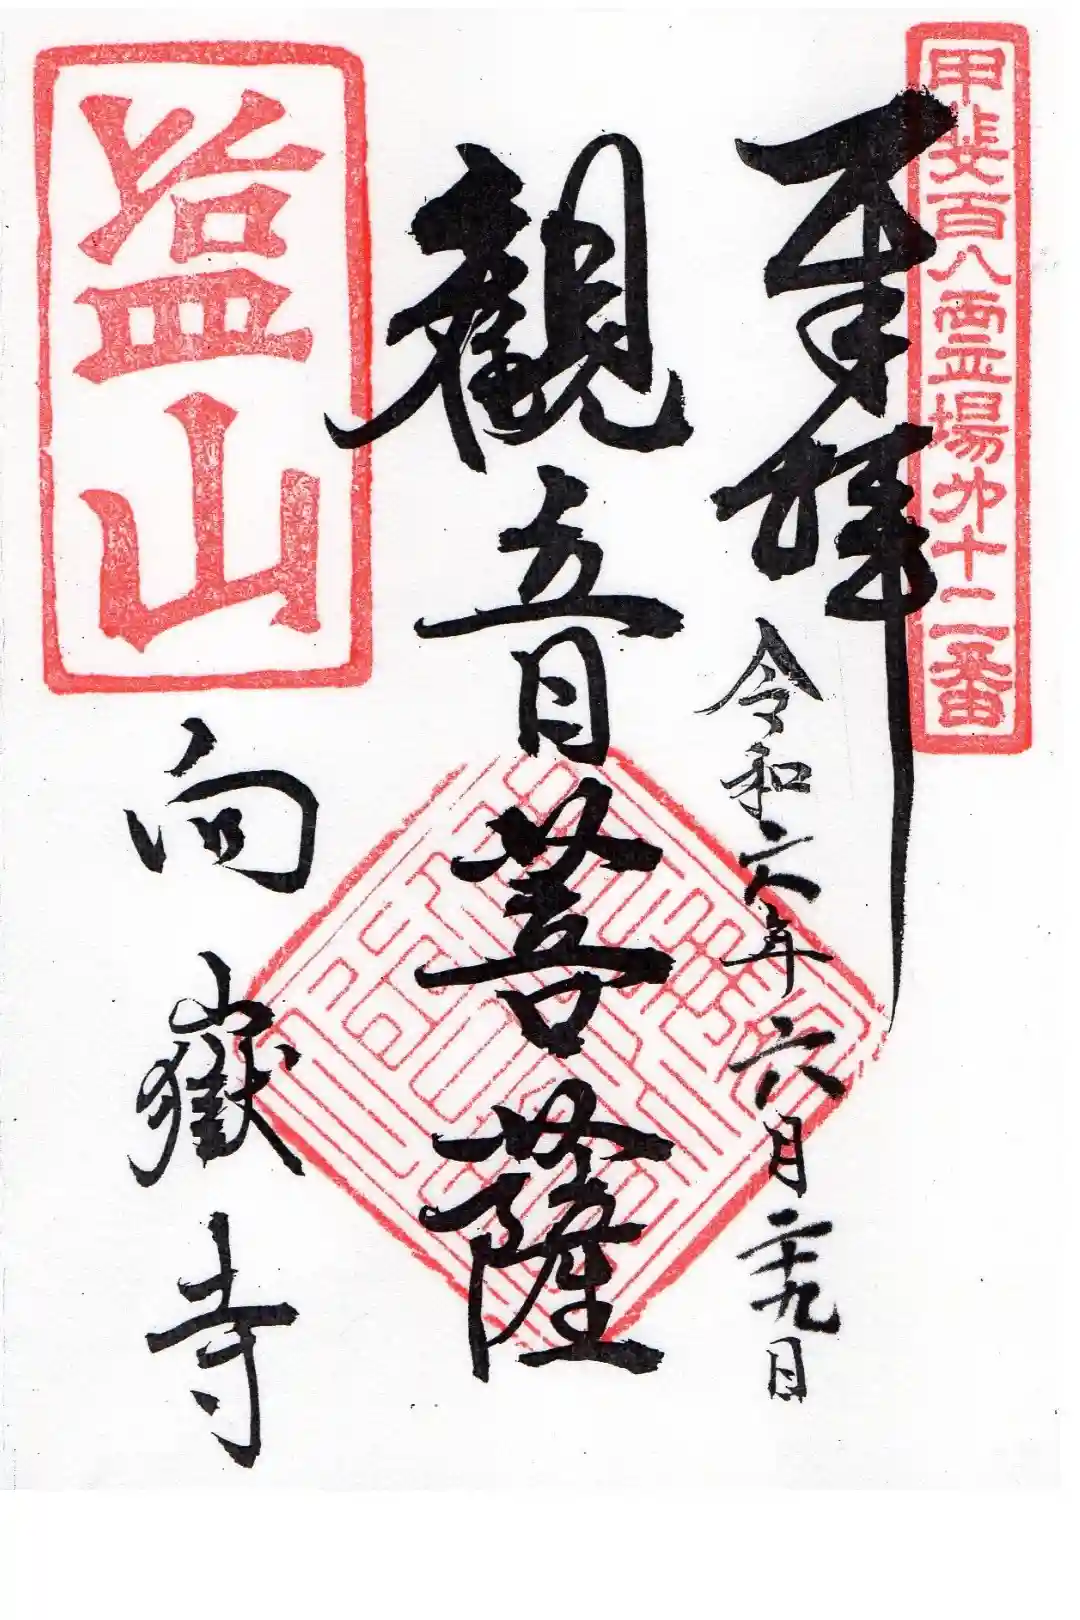 甲斐百八霊場第十二番
奉拝
令和六年六月二十九日
観音菩薩
塩山
向嶽寺